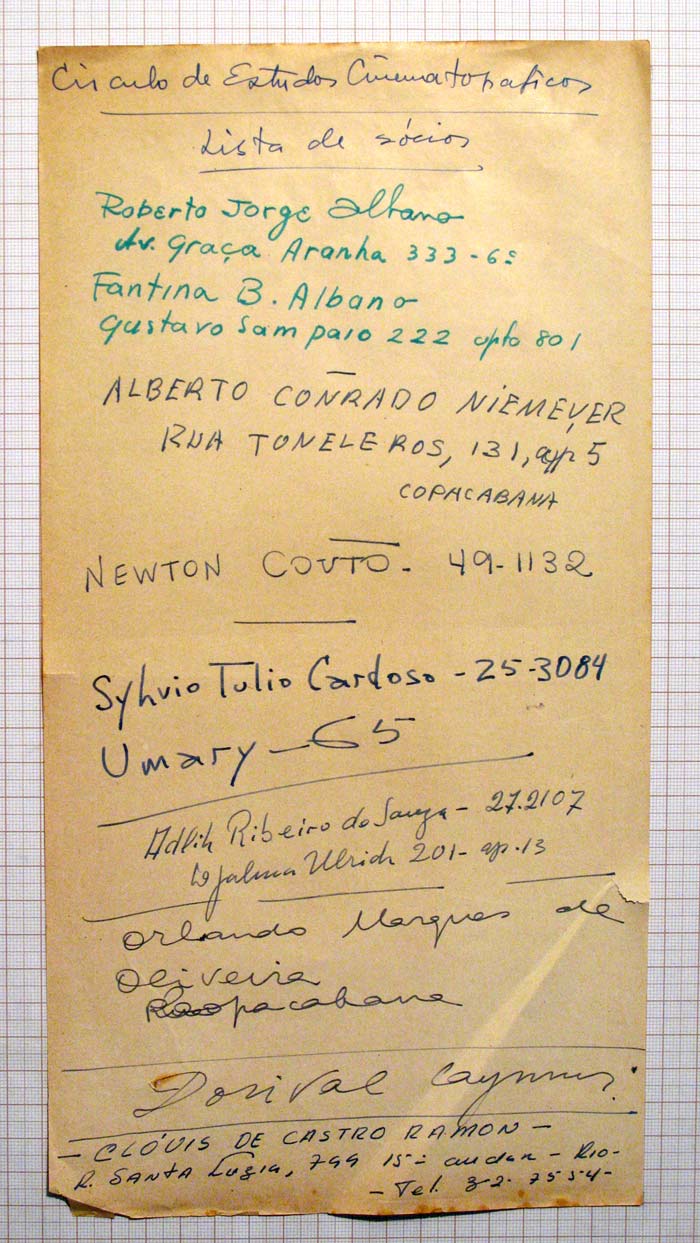 Circulo de Estudos Cinematograficos
Lista de sócios
Roberto Jorge Albano
Av. Graça Aranha 333-6º
Fantina B. Albano
Gustavo Sampaio 222 apto 801
ALBERTO CONRADO NIEMEYER
RUA TONELEROS, 131, ap 5
COPACABANA
NEWTON COUTO - 49-1132
Sylvio Tulio Cardoso - 25-3084
Umary - 65
Adlih Ribeiro de Souza - 27.2107
Djalma Ulrich 201 - ap. 13
Orlando Marques de
Oliveira
Copacabana
Dorival Caymmi
- CLÓVIS DE CASTRO RAMON -
R. SANTA Luzia, 799 15º andar - Rio -
- Tel. 32-7554 -